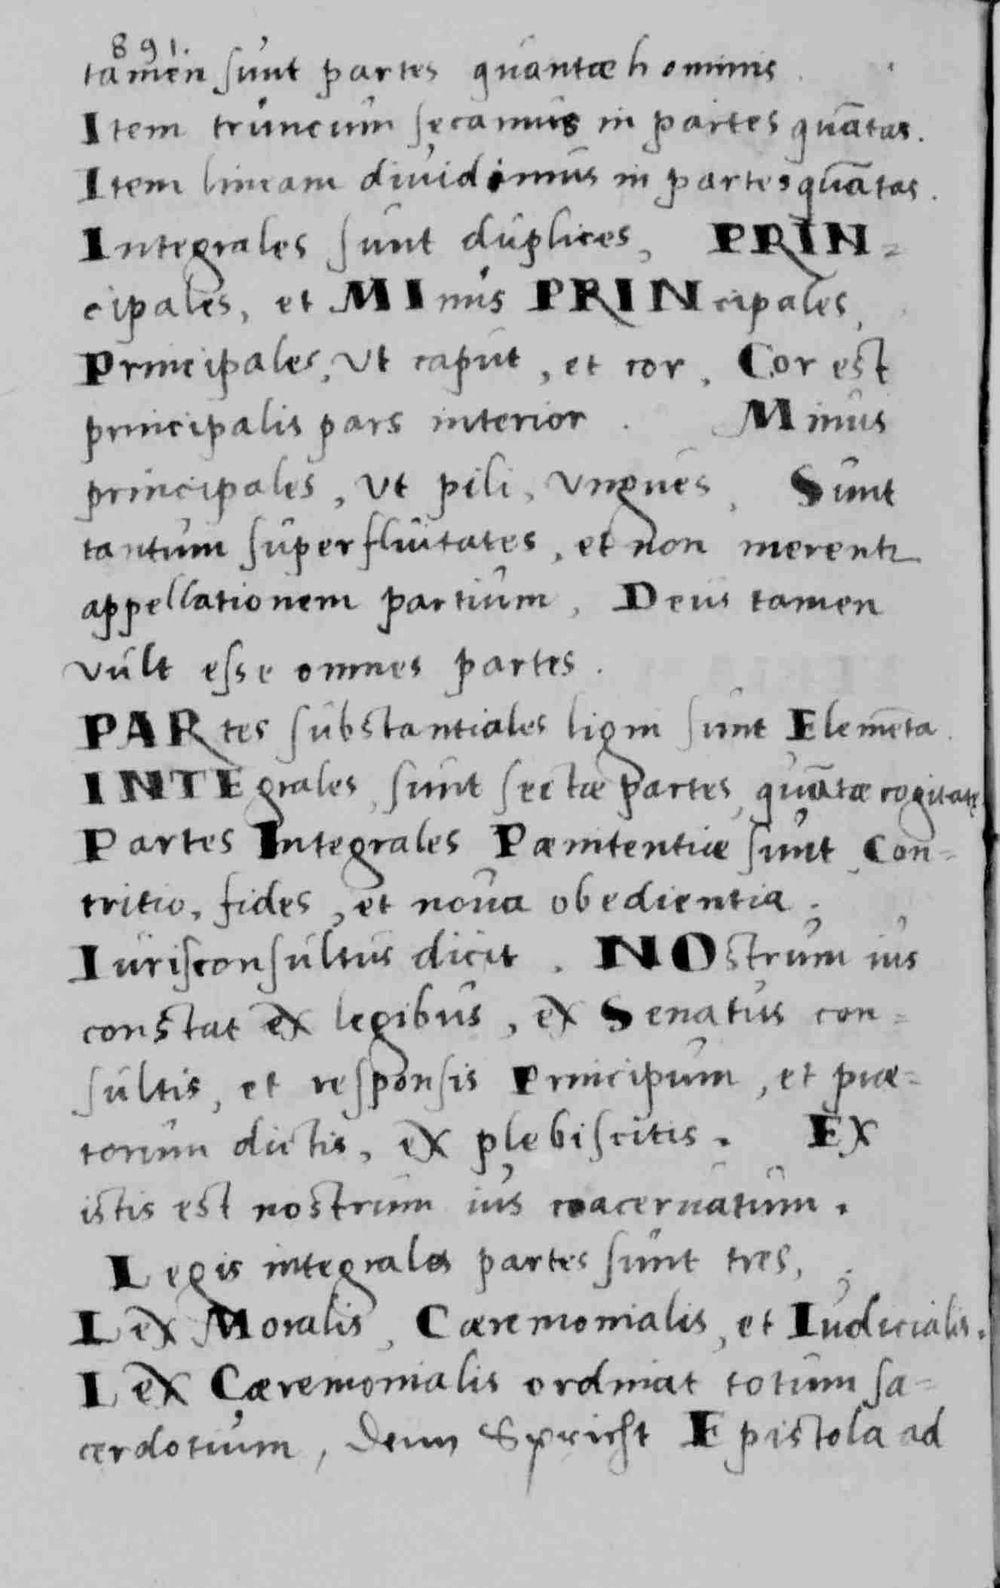 891.
tamen sunt partes quantæ hominis.
Item truncum secamus in partes quātas.
Item lineam diuidimus in partes quātas.
Integrales sunt duplices, PRIN-
cipales, et MInus PRINcipales,
Principales, Vt caput, et cor, Cor est
principalis pars interior. Minus
principales, Vt pili, Vngues, Sunt
tantum superfluitates, et non merentr
appellationem partium, Deus tamen
Vult esse omnes partes.
PARtes substantiales ligni sunt Elemēta.
INTEgrales, sunt sectæ partes, quātæ cogitatę
Partes Integrales Pænitentiæ sunt, Con-
tritio, fides, et noua obedientia.
Iurisconsultus dicit. NOstrum ius
constat ex legibus, ex Senatus con-
sultis, et responsis Principum, et præ-
torum dictis, ex plebiscitis. EX
istis est nostrum ius coaceruatum.
Legis integrales partes sunt tres,
Lex Moralis, Cæremonialis, et Iudicialis.
Lex Cæremonialis ordinat totum sa-
cerdotium, Denn Spricht Epistola ad